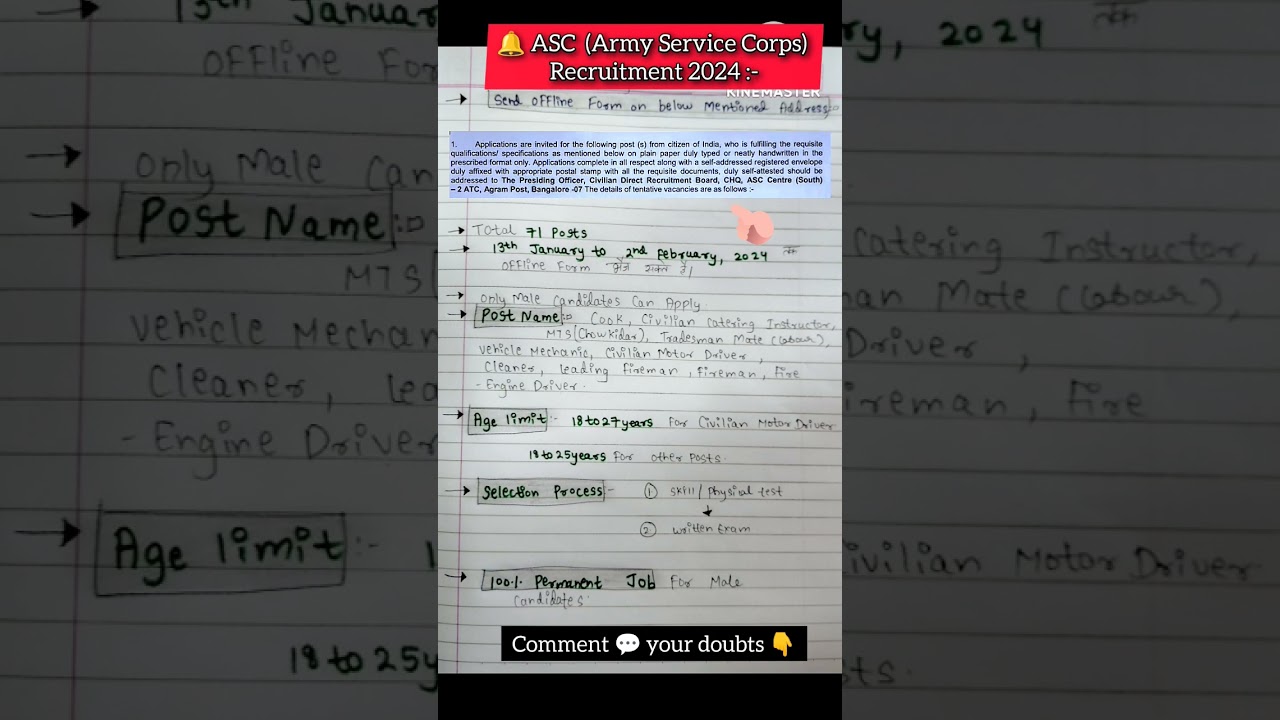 🔔 ASC (Army Service Corps)
Recruitment 2024 :-
KINEMASTER
→ Send OFFline Form on below Mentioned Address:-
1. Applications are invited for the following post (s) from citizen of India, who is fulfilling the requisite
qualifications/ specifications as mentioned below on plain paper duly typed or neatly handwritten in the
prescribed format only. Applications complete in all respect along with a self-addressed registered envelope
duly affixed with appropriate postal stamp with all the requisite documents, duly self-attested should be
addressed to The Presiding Officer, Civilian Direct Recruitment Board, CHQ, ASC Centre (South)
– 2 ATC, Agram Post, Bangalore -07 The details of tentative vacancies are as follows :-
→ Total 71 Posts
→ 13th January to 2nd February, 2024 तक
OFFline Form भेज सकते हैं।
→ Only Male Candidates Can Apply.
→ Post Name:- Cook, Civilian Catering Instructor,
MTS(Chowkidar), Tradesman Mate (Labour),
Vehicle Mechanic, Civilian Motor Driver,
Cleaner, Leading Fireman, Fireman, Fire
- Engine Driver.
→ Age limit:- 18 to 27 years For Civilian Motor Driver
18 to 25 years For other Posts.
→ Selection Process:- ① Skill/Physical test
↓
② written Exam
→ 100% Permanent Job For Male
Candidates.
Comment 💬 your doubts 👇
13th January
ry, 2024 तक
OFFline For
Only Male Can
→ Post Name:-
Catering Instructor,
MTS(
man Mate (Labour),
Vehicle Mechan
Driver,
Cleaner, Lea
ireman, Fire
- Engine Driver
→ Age limit:-
ivilian Motor Driver
18 to 25 y
sts.